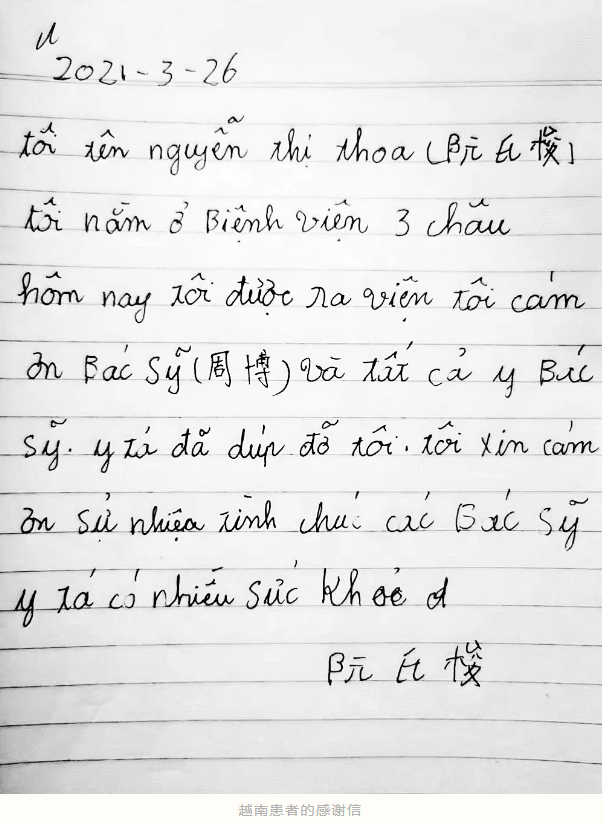 2021-3-26
tôi tên nguyễn thị thoa (阮氏梭)
tôi nằm ở Biệnh viện 3 chấu
hôm nay tôi được ra viện tôi cám
ơn Bác Sỹ (周博) và tất cả y Bác
Sỹ. y tá đã dúp đỡ tôi. tôi xin cám
ơn Sự nhiệa tình chúc các Bác Sỹ
y tá có nhiều Sức Khoẻ
阮氏梭
越南患者的感谢信